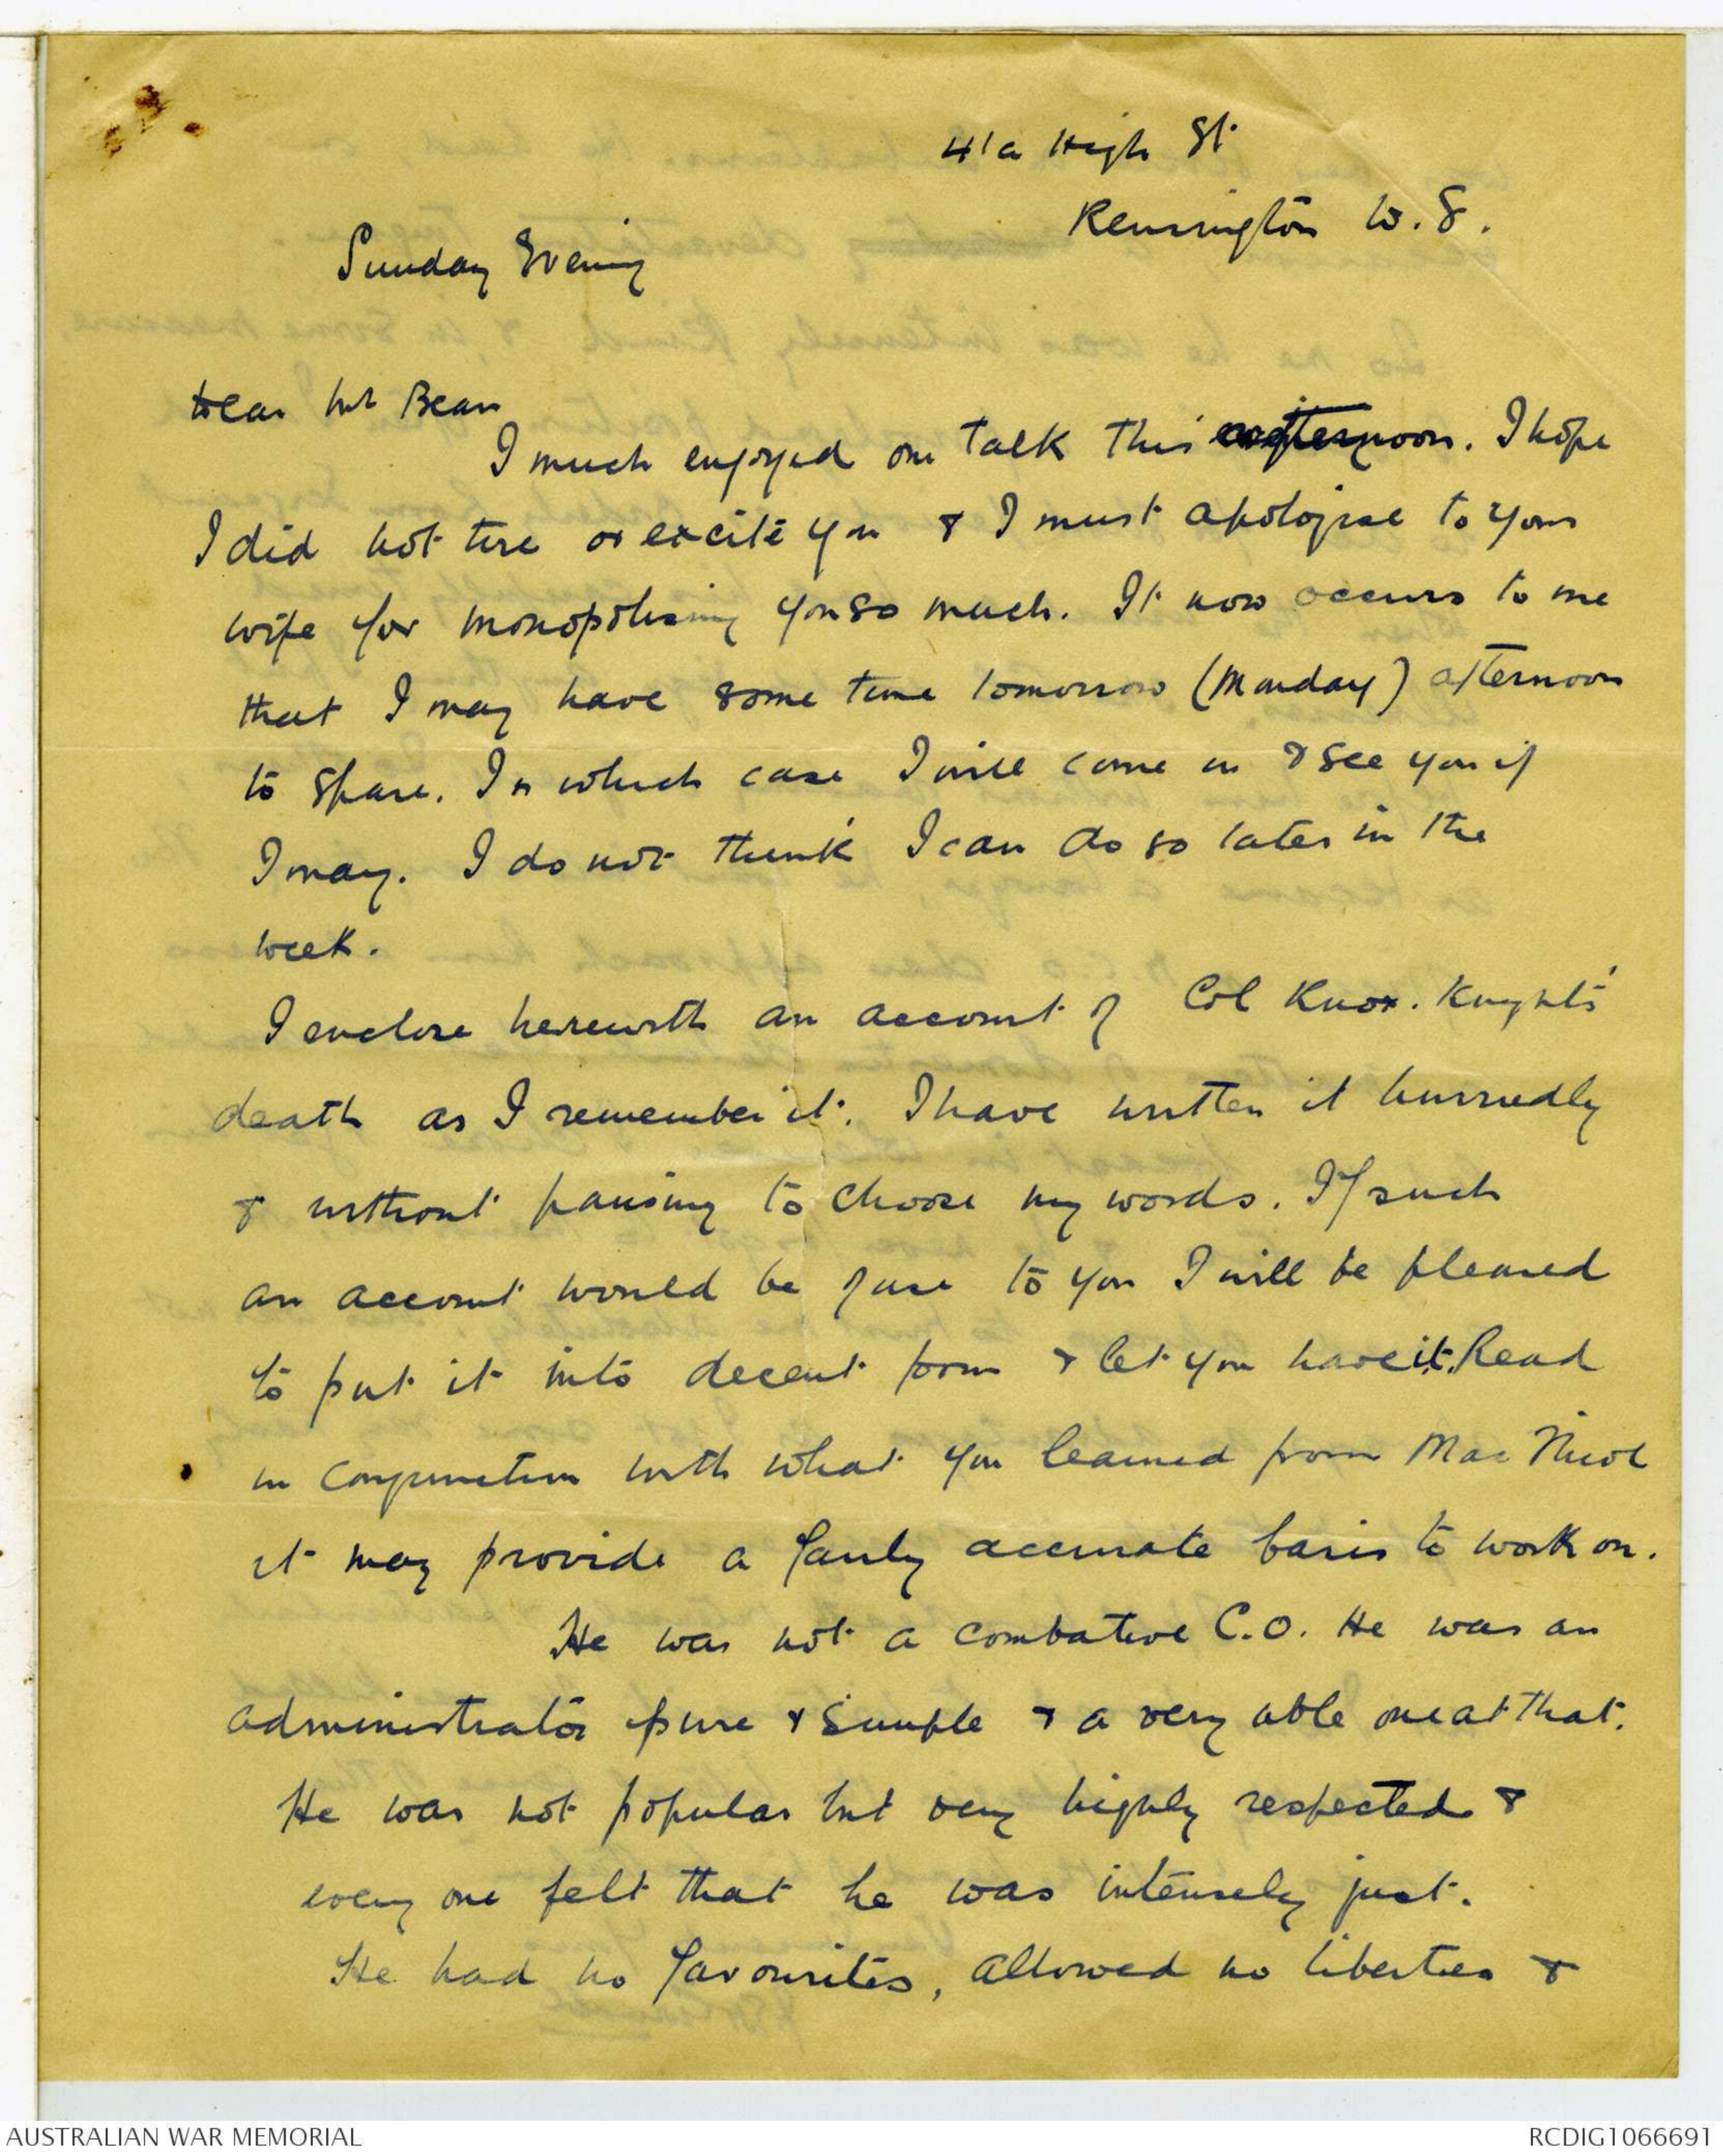 41a High St
Kensington W.8.
Sunday Evening
Dear Mr Bean
I much enjoyed our talk this afternoon. I hope
I did not tire or excite you & I must apologise to your
wife for monopolising you so much. It now occurs to me
that I may have some time tomorrow (Monday) afternoon
to spare. In which case I will come in & see you if
I may. I do not think I can do so later in the
week.
I enclose herewith an account of Col Knox. Knight's
death as I remember it. I have written it hurriedly
& without pausing to choose my words. If such
an account would be of use to you I will be pleased
to put it into decent form & let you have it. Read
in conjunction with what you learned from MacNicol
it may provide a fairly accurate basis to work on.
He was not a combative C.O. He was an
administrator pure & simple & a very able one at that.
He was not popular but very highly respected &
every one felt that he was intensely just.
He had no favourites, allowed no liberties &
AUSTRALIAN WAR MEMORIAL
RCDIG1066691